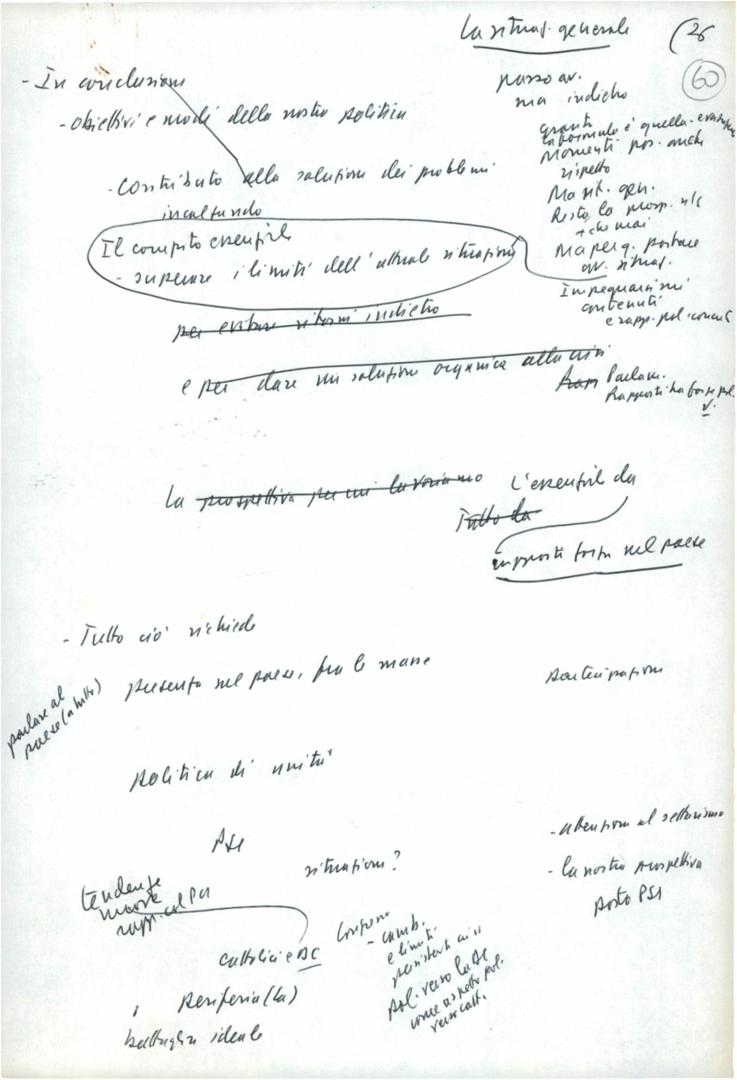 La situaz. generale
(26
60
- In conclusione
- obiettivi e modi della nostra politica
- Contributo alla soluzione dei problemi
incalzando
Il compito essenziale
- superare i limiti dell'attuale situazione
per evitare ritorni indietro
e per dare una soluzione organica alla crisi
La prospettiva per cui lavoriamo
L'essenziale da
Tutto da
rapporti forza nel paese
passo av.
ma indietro
informale è quella
Momenti pos. anche
rispetto
Ma sit. gen.
Resta la prosp.
+ che mai
Ma per q. portare
av. situaz.
Impegnarci sui
contenuti
e rapp. pol.
Parlam.
Rapporti tra forze pol.
- Tutto ciò richiede
parlare al
paese (a tutto)
presenza nel paese, fra le masse
partecipazione
politica di unità
PSI
situazione?
- attenzione al settarismo
- la nostra prospettiva
posto PSI
tendenze
nuove
rapp. col PCI
cattolici e DC
Congresso
- camb.
e limiti
persistenti
pol. verso la DC
come aspetto pol.
verso catt.
periferia (la)
battaglia ideale